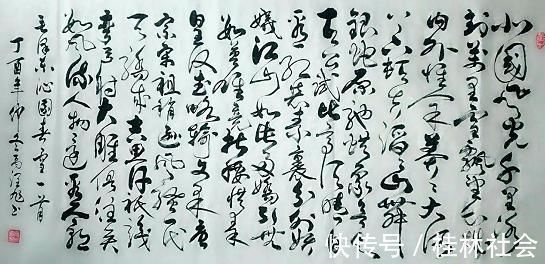 北国风光千里冰
封万里雪飘望长城
内外惟余莽莽大河
上下顿失滔滔山舞
银蛇原驰蜡象欲与
天公试比高须晴日
看红装素裹分外妖
娆江山如此多娇引无
数英雄竞折腰惜秦
皇汉武略输文采唐
宗宋祖稍逊风骚一代
天骄成吉思汗只识
弯弓射大雕俱往矣
数风流人物还看今朝
毛泽东沁园春雪一首
丁酉年仲冬书
快传号/桂林社会